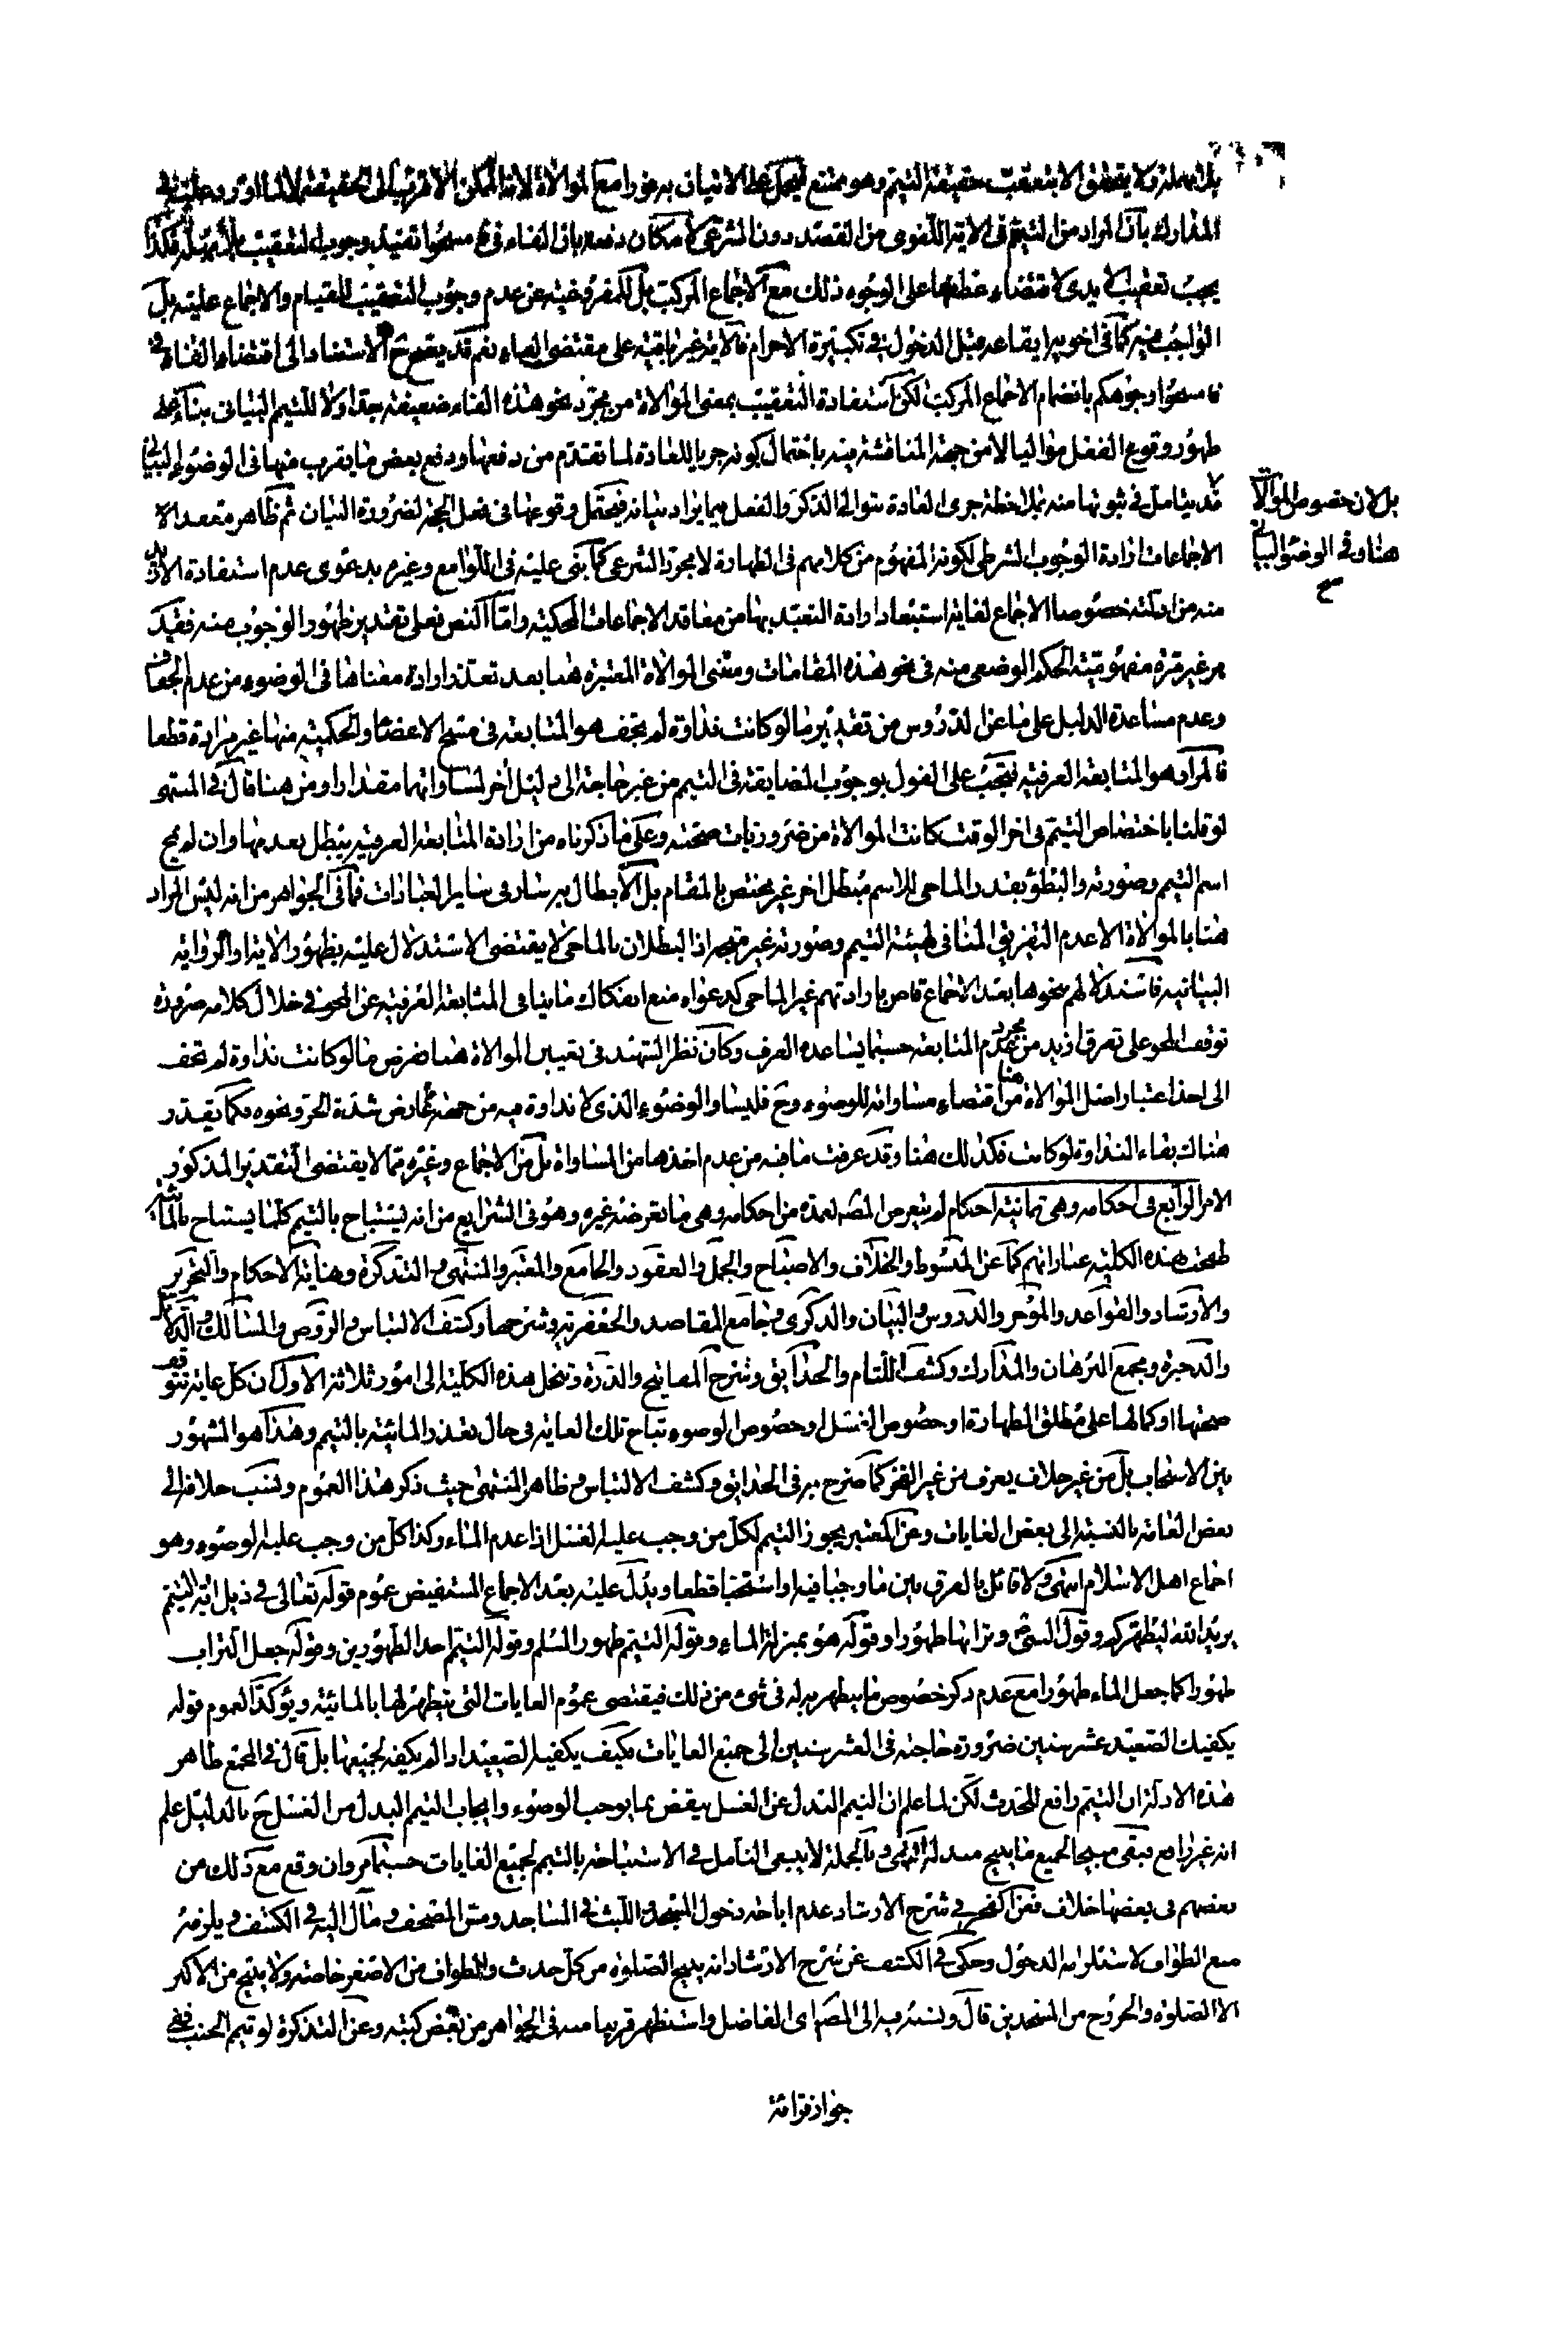 بلا مهملة ولا يتحقق الا بتعقيب حقيقة التيمم وهو ممتنع فيحمل على الاتيان به فورا مع الموالاة لانه الممكن الاقرب الى الحقيقة
المدارك بان المراد من التيمم فى الاية اللغوى من القصد دون الشرعى لامكان دفعه بان الفاء فى فامسحوا تفيد وجوب التعقيب بلا مهلة فكذا
يجب تعقيب الايدى لاقتضاء عطفها على الوجوه ذلك مع الاجماع المركب بل للمفروغية عن عدم وجوب التعقيب للقيام والاجماع عليه بل
الواجب فيه كما فى اخويه ايقاعه قبل الدخول فى تكبيرة الاحرام فالاية غير باقية على مقتضى الفاء نعم قد يصح ح الاستناد الى اقتضاء الفاء فى
فامسحوا وجوهكم بانضمام الاجماع المركب لكن استفادة التعقيب بمعنى الموالاة من مجرد نحو هذه الفاء ضعيفة جدا ولا للتيمم البيانى بناء على
ظهور وقوع الفعل مواليا لا من جهة المناقشة فيه باحتمال كونه جريا للعادة لما تقدم من دفعها ودفع بعض ما يقرب منها فى الوضوء البيانى
قد يتامل فى ثبوتها منه بملاحظة جرى العادة بتوالى الذكر والفعل فيما يراد بيانه فيحتمل وقوعها فى فعل الحجة لضرورة البيان ثم ظاهر معقد الا
الاجماعات ارادة الوجوب الشرطى لكونه المفهوم من كلامهم فى الطهارة لا مجرد الشرعى كما بنى عليه فى اللوامع وغيره بدعوى عدم استفادة الازيد
منه من ادلته خصوصا الاجماع لغاية استبعاد ارادة التعبد بها من معاقد الاجماعات المحكية واما النص فعلى تقدير ظهور الوجوب منه فقد
مر غير مرة مفهومية الحكم الوضعى منه فى نحو هذه المقامات ومعنى الموالاة المعتبرة هنا بعد تعذر ارادة معناها فى الوضوء من عدم الجفاف
وعدم مساعدة الدليل على ما عن الدروس من تقدير ما لو كانت نداوة لم يجف هو المتابعة فى مسح الاعضاء والحكمية منها غير مرادة قطعا
فالمراد هو المتابعة العرفية فتجب على القول بوجوب المضايقة فى التيمم من غير حاجة الى دليل اخر لمساواتهما مقدارا ومن هنا قال فى المنتهى
لو قلنا باختصاص التيمم فى اخر الوقت كانت الموالاة من ضروريات صحته وعلى ما ذكرناه من ارادة المتابعة العرفية يبطل بعدمها وان لم يمح
اسم التيمم وصورته والبطؤ بقدر الماحى للاسم مبطل اخر غير مختص بالمقام بل الابطال به سار فى ساير العبادات فما فى الجواهر من انه ليس المراد
هنا بالموالاة الا عدم التفريق المنافى لهيئة التيمم وصورته غير متجه اذ البطلان بالماحى لا يقتضى الاستدلال عليه بظهور الاية او الرواية
البيانيه فاستدلالهم بنحوها بعد الاجماع قاض بارادتهم غير الماحى كدعواه منع انفكاك ما ينافى المتابعة العرفية عن المحو فى خلال كلامه ضرورة
توقف المحو على تفرق ازيد من مجرد عدم المتابعة حسبما يساعده العرف وكان نظر الشهيد فى تعيين الموالاة هنا بفرض ما لو كانت نداوة لم تجف
الى اخذ اعتبار اصل الموالاة هنا من اقتضاء مساواته للوضوء وح فليساو الوضوء الذى لا نداوة فيه من جهة عارض شدة الحر ونحوه فكما يقدر
هنالك بقاء النداوة لو كانت فكذلك هنا وقد عرفت ما فيه من عدم اخذها من المساواة بل من الاجماع وغيره مما لا يقتضى التقدير المذكور
الامر الرابع فى احكامه وهى ثمانية احكام لم يتعرض المصَ لعدة من احكامه وهى ما تعرضه غيره وهو فى الشرايع من انه يستباح بالتيمم كلما يستباح بالمائية
طفحت بهذه الكلية عباراتهم كما عن المبسوط والخلاف والاصباح والجمل والعقود والجامع والمعتبر والمنتهى والتذكرة ونهاية الاحكام والتحرير
والارشاد والقواعد والموجز والدروس والبيان والذكرى وجامع المقاصد والجعفرية وشرحها وكشف الالتباس والروض والمسالك
والذخيرة ومجمع البرهان والمدارك وكشف اللثام والحدائق وشرح المفاتيح والدرة وتنحل هذه الكلية الى امور ثلاثة الاول ان كل غاية تتوقف
صحتها او كمالها على مطلق الطهارة او خصوص الغسل او خصوص الوضوء تباح تلك الغاية فى حال تعذر المائية بالتيمم وهذا هو المشهور
بين الاصحاب بل من غير خلاف يعرف من غير الفخر كما صرح به فى الحدائق وكشف الالتباس وظاهر المنتهى حيث ذكر هذا العموم ونسب خلافه الى
بعض العامة بالنسبة الى بعض الغايات وعن المعتبر يجوز التيمم لكل من وجب عليه الغسل اذا عدم الماء وكذا كل من وجب عليه الوضوء وهو
اجماع اهل الاسلام انتهى ولا قائل بالفرق بين ما وجبا فيه او استحبا قطعا ويدل عليه بعد الاجماع المستفيض عموم قوله تعالى فى ذيل اية التيمم
يريد الله ليطهركم وقول النبىص وترابها طهورا وقوله هو بمنزلة الماء وقوله التيمم طهور المسلم وقوله التيمم احد الطهورين وقوله جعل التراب
طهورا كما جعل الماء طهورا مع عدم ذكر خصوص ما يطهر به له فى شئ من ذلك فيقتضى عموم الغايات التى يتطهر لها بالمائية ويؤكد العموم قوله
يكفيك الصعيد عشر سنين ضرورة حاجته فى العشر سنين الى جميع الغايات فكيف يكفيه الصعيد اذا لم يكفه لجميعها بل قال فى المجمع ظاهر
هذه الادلة ان التيمم رافع للحدث لكن لما علم ان التيمم البدل عن الغسل ينقض بما يوجب الوضوء وايجاب التيمم البدل من الغسل ح بالدليل علم
انه غير رافع فبقى مبيحا لجميع ما يبيح مبدله انتهى وبالجملة لا ينبغى التامل فى الاستباحة بالتيمم لجميع الغايات حسبما مر وان وقع مع ذلك من
بعضهم فى بعضها خلاف فعن الفخر فى شرح الارشاد عدم اباحة دخول المسجدين واللبث فى المساجد ومس المصحف ومال اليه فى الكشف ويلزمه
منع الطواف لاستلزامه الدخول وحكى فى الكشف عن شرح الارشاد انه يبيح الصلوة من كل حدث والطواف من الاصغر خاصة ولا يبيح من الاكبر
الا الصلوة والخروج من المسجدين قال ونسبه فيه الى المصَ اى الفاضل واستظهر قريبا منه فى الجواهر من بعض كتبه وعن التذكرة لو تيمم الجنب ففى
بل لان خصوص الموالاة
هنا وفى الوضوء البيانى
صح
جواز قرائة